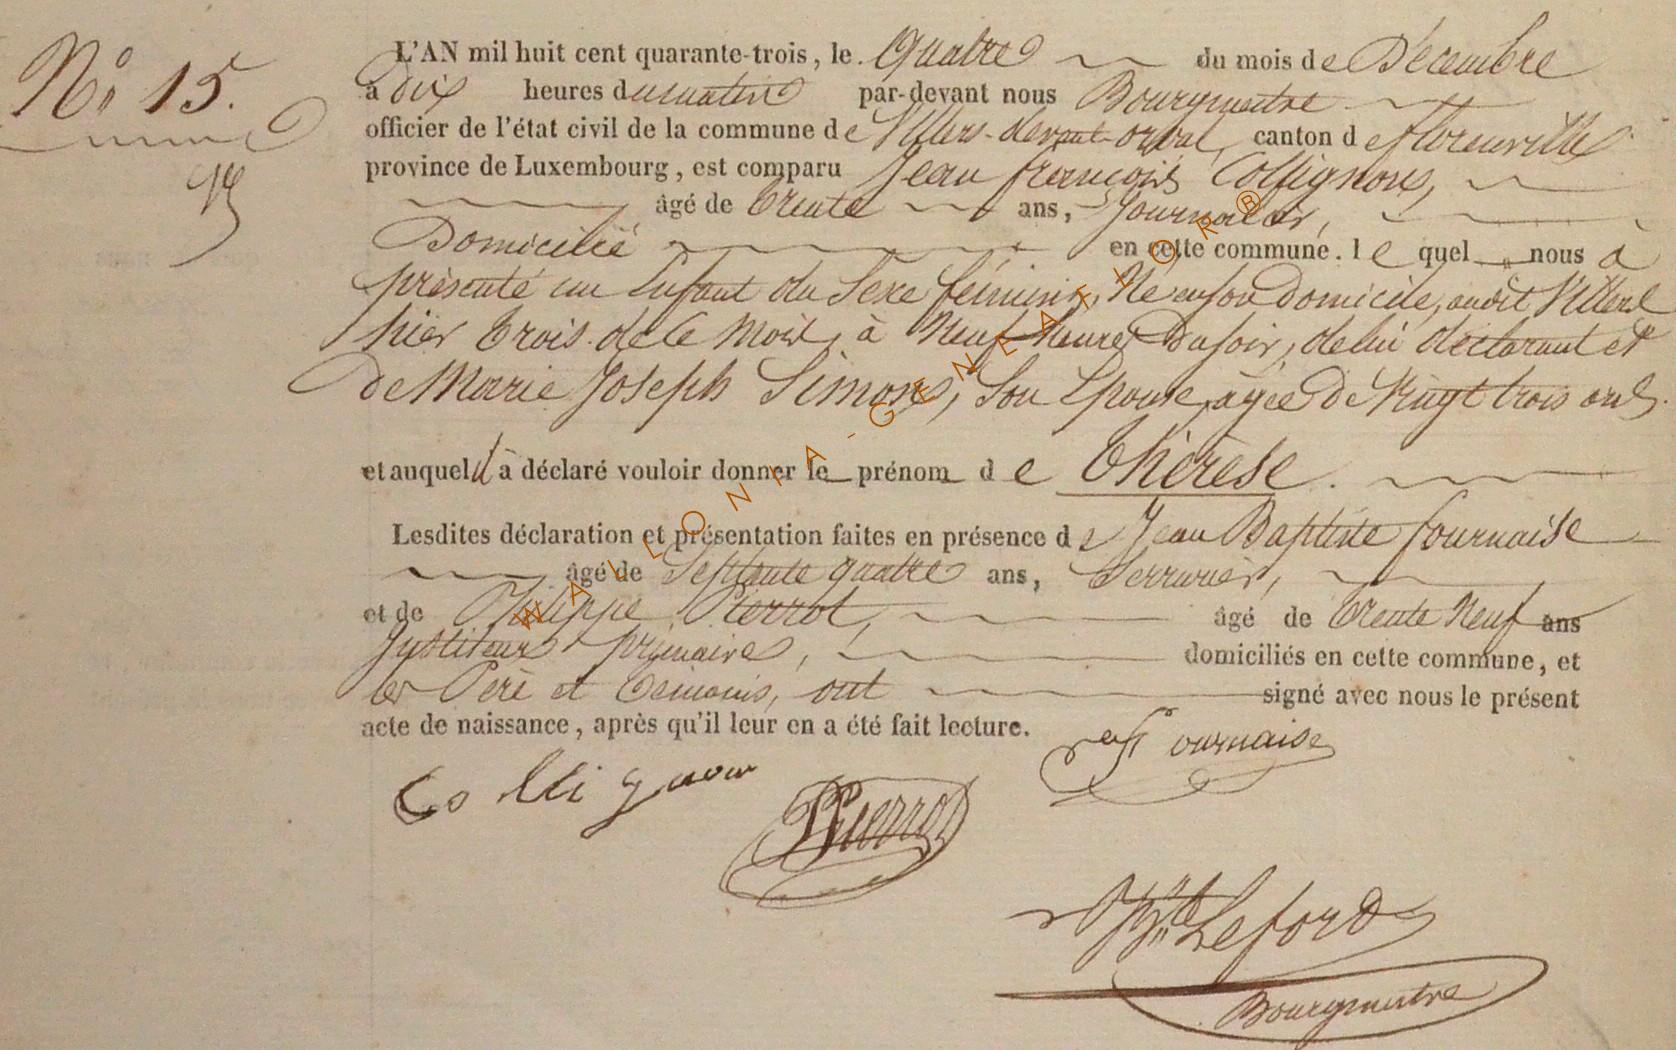 N° 15.
L'AN mil huit cent quarante-trois, le Quatre du mois de Décembre
à dix heures du matin par-devant nous Bourgmestre
officier de l'état civil de la commune de Villers-devant-orval, canton de florenville
province de Luxembourg, est comparu Jean françois Collignon,
âgé de trente ans, Journalier,
Domicilié en cette commune. le quel nous à
présenté un Enfant du Sexe féminin, Né en son Domicile, audit Villers
hier trois de ce mois, à Neuf heures Du soir, de lui déclarant et
De Marie Joseph Simon, Son Epouse, agée De Vingt trois ans.
et auquel il à déclaré vouloir donner le prénom de thérèse.
Lesdites déclaration et présentation faites en présence de Jean Baptiste fournaise
âgé de Septente quatre ans, Serrurier,
et de Philippe Pierrot, âgé de trente Neuf ans
Instituteur primaire, domiciliés en cette commune, et
les Père et temoins, ont signé avec nous le présent
acte de naissance, après qu'il leur en a été fait lecture.
Fournaise
Collignon
Pierrot
Lefort
Bourgmestre
WALLONIA-GENEATHOR®